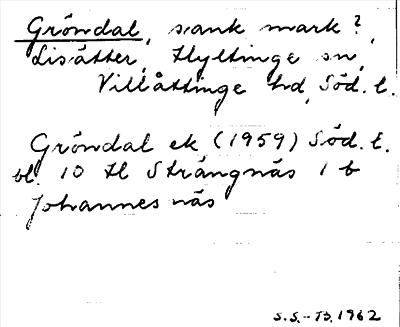 Gröndal, sank mark?,
Lisätter, Hyltinge sn,
Villåttinge hd, Söd. l.
Gröndal ek (1959) Söd. l.
bl. 10 H Strängnäs 1 b
Johannesnäs
S.S.-B. 1962